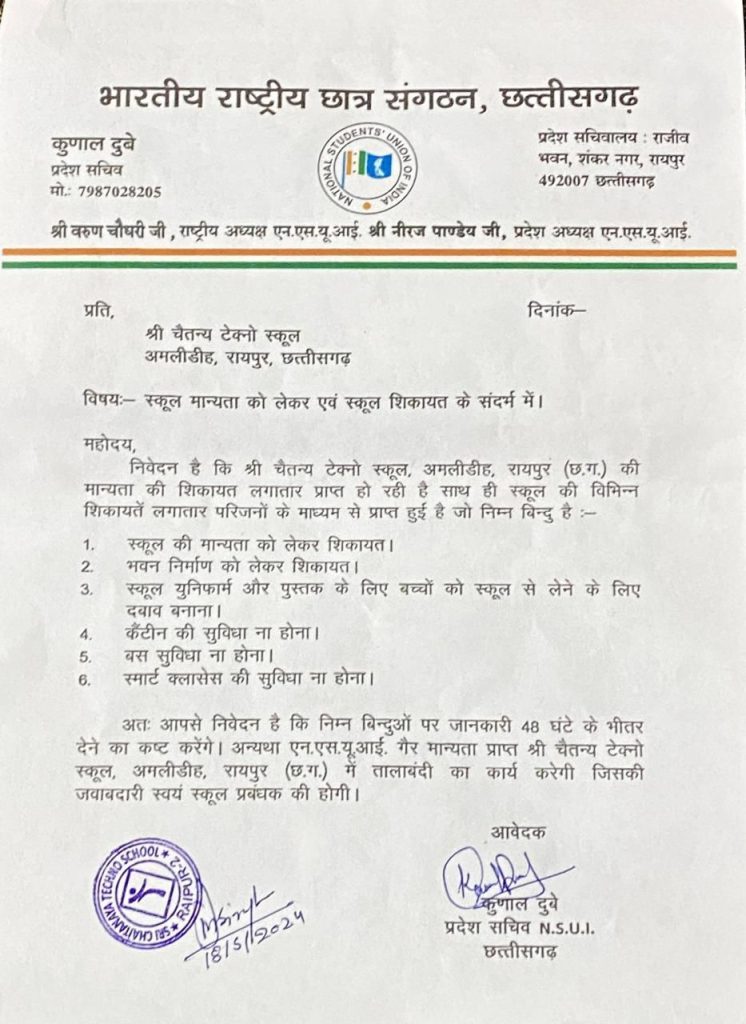 भारतीय राष्ट्रीय छात्र संगठन, छत्तीसगढ़
कुणाल दुबे
प्रदेश सचिव
मो.: 7987028205
NATIONAL STUDENTS' UNION OF INDIA
प्रदेश सचिवालय : राजीव
भवन, शंकर नगर, रायपुर
492007 छत्तीसगढ़
श्री वरुण चौधरी जी , राष्ट्रीय अध्यक्ष एन.एस.यू.आई. श्री नीरज पाण्डेय जी, प्रदेश अध्यक्ष एन.एस.यू.आई.
प्रति,
दिनांक–
श्री चैतन्य टेक्नो स्कूल
अमलीडीह, रायपुर, छत्तीसगढ़
विषयः– स्कूल मान्यता को लेकर एवं स्कूल शिकायत के संदर्भ में।
महोदय,
निवेदन है कि श्री चैतन्य टेक्नो स्कूल, अमलीडीह, रायपुर (छ.ग.) की
मान्यता की शिकायत लगातार प्राप्त हो रही है साथ ही स्कूल की विभिन्न
शिकायतें लगातार परिजनों के माध्यम से प्राप्त हुई है जो निम्न बिन्दु है :–
1. स्कूल की मान्यता को लेकर शिकायत।
2. भवन निर्माण को लेकर शिकायत।
3. स्कूल युनिफार्म और पुस्तक के लिए बच्चों को स्कूल से लेने के लिए
दबाव बनाना।
4. कैंटीन की सुविधा ना होना।
5. बस सुविधा ना होना।
6. स्मार्ट क्लासेस की सुविधा ना होना।
अतः आपसे निवेदन है कि निम्न बिन्दुओं पर जानकारी 48 घंटे के भीतर
देने का कष्ट करेंगे। अन्यथा एन.एस.यू.आई. गैर मान्यता प्राप्त श्री चैतन्य टेक्नो
स्कूल, अमलीडीह, रायपुर (छ.ग.) में तालाबंदी का कार्य करेगी जिसकी
जवाबदारी स्वयं स्कूल प्रबंधक की होगी।
आवेदक
SRI CHAITANAYA TECHNO SCHOOL ★ RAIPUR-2 ★
18/5/2024
कुणाल दुबे
प्रदेश सचिव N.S.U.I.
छत्तीसगढ़